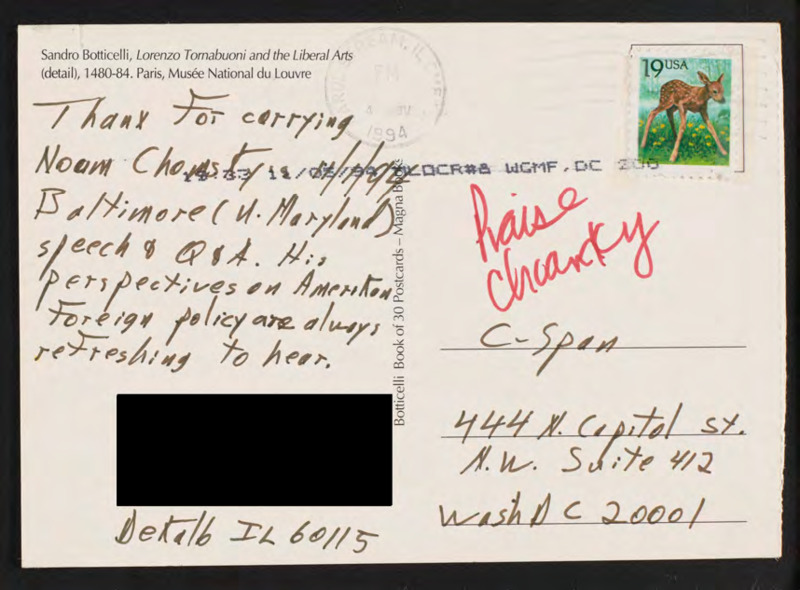 Sandro Botticelli, Lorenzo Tornabuoni and the Liberal Arts
(detail), 1480-84. Paris, Musée National du Louvre
Thanx For carrying
Noam Chomsky's
Baltimore (U. Maryland)
speech & Q&A. His
perspectives on Amerikan
Foreign policy are always
refreshing to hear.
DeKalb IL 60115
Botticelli Book of 30 Postcards – Magna Books
STREAM, IL
PM
4
1994
19USA
#8 WGMF, DC 200
Praise
chomsky
C-Span
444 N. Capitol St.
N.W. Suite 412
Wash DC 20001